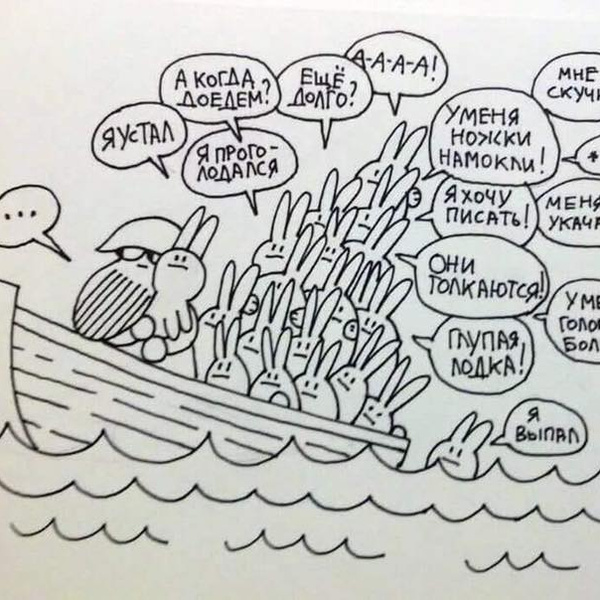 А-А-А-А!
А КОГДА
ДОЕДЕМ?
ЕЩЁ
ДОЛГО?
МНЕ
СКУЧН
Я УСТАЛ
Я ПРОГО-
ЛОДАЛСЯ
У МЕНЯ
НОЖКИ
НАМОКЛИ!
*
...
Я ХОЧУ
ПИСАТЬ!
МЕНЯ
УКАЧА
ОНИ
ТОЛКАЮТСЯ!
У МЕ
ГОЛО
БОЛ
ГЛУПАЯ
ЛОДКА!
Я
ВЫПАЛ